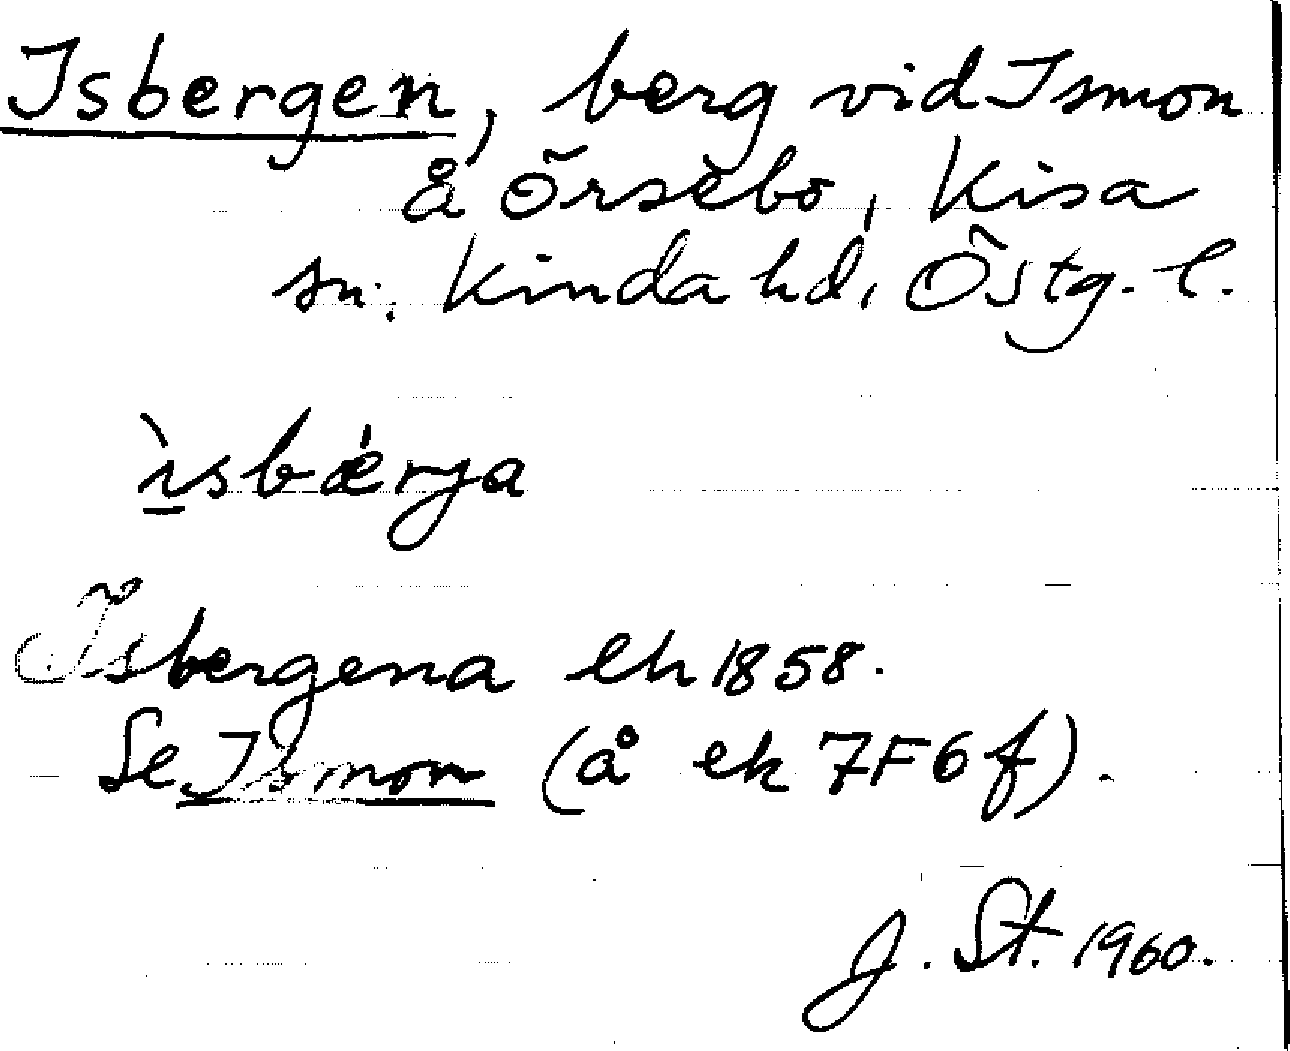 Isbergen, berg vid Ismon
å Örsebo, Kisa
sn. Kinda hd, Östg. l.
ìsbǽrja
Isbergena ek 1858.
Se Ismon (å ek 7F6f).
J. St. 1960.